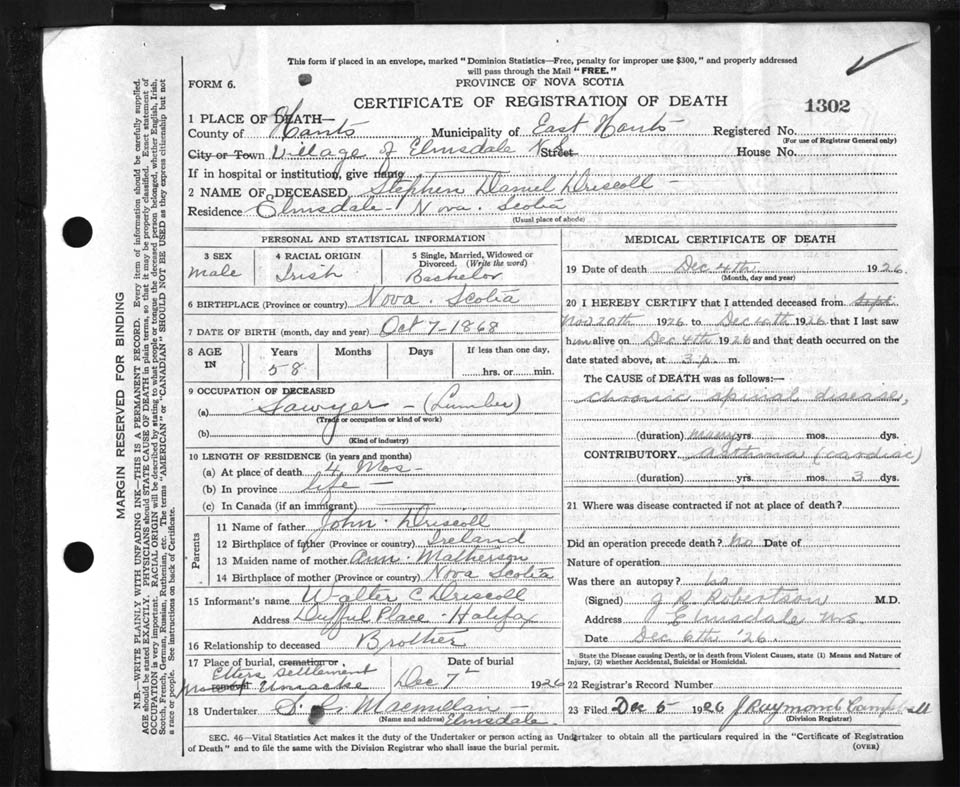 This form if placed in an envelope, marked "Dominion Statistics—Free, penalty for improper use $300," and properly addressed
will pass through the Mail "FREE."
FORM 6.
PROVINCE OF NOVA SCOTIA
CERTIFICATE OF REGISTRATION OF DEATH
1302
1 PLACE OF DEATH—
County of Hants Municipality of East Hants Registered No.
(For use of Registrar General only)
City or Town Village of Elmsdale N.S. Street House No.
If in hospital or institution, give name
2 NAME OF DECEASED Stephen Daniel Driscoll
Residence Elmsdale - Nova. Scotia
(Usual place of abode)
PERSONAL AND STATISTICAL INFORMATION
3 SEX 4 RACIAL ORIGIN 5 Single, Married, Widowed or
Divorced. (Write the word)
male Irish Bachelor
6 BIRTHPLACE (Province or country) Nova. Scotia
7 DATE OF BIRTH (month, day and year) Oct 7-1868
8 AGE IN Years Months Days If less than one day,
58 hrs. or min.
9 OCCUPATION OF DECEASED
(a) Sawyer - (Lumber)
(Trade or occupation or kind of work)
(b)
(Kind of industry)
10 LENGTH OF RESIDENCE (in years and months)
(a) At place of death 4 Mos -
(b) In province life -
(c) In Canada (if an immigrant)
Parents
11 Name of father John Driscoll
12 Birthplace of father (Province or country) Ireland
13 Maiden name of mother Ann Matherson
14 Birthplace of mother (Province or country) Nova Scotia
15 Informant's name Walter C Driscoll
Address Place - Halifax
16 Relationship to deceased Brother
17 Place of burial, cremation or removal Date of burial
Etters Settlement
Uniacke Dec 7th 1926
18 Undertaker Macmillan -
(Name and address) Elmsdale
MEDICAL CERTIFICATE OF DEATH
19 Date of death Dec 4th 1926
(Month, day and year)
20 I HEREBY CERTIFY that I attended deceased from Sept
Nov 20th 1926 to Dec 4th 1926 that I last saw
him alive on Dec 4th 1926 and that death occurred on the
date stated above, at 3 p. m.
The CAUSE OF DEATH was as follows:—
Chronic spinal disease,
(duration) many yrs. mos. dys.
CONTRIBUTORY asthma (cardiac)
(duration) yrs. mos. 3 dys.
21 Where was disease contracted if not at place of death?
Did an operation precede death? No Date of
Nature of operation
Was there an autopsy? No
(Signed) J R Robertson M.D.
Address Elmsdale NS
Date Dec 6th '26.
State the Disease causing Death, or in death from Violent Causes, state (1) Means and Nature of
Injury, (2) whether Accidental, Suicidal or Homicidal.
22 Registrar's Record Number
23 Filed Dec 6 1926 J Raymond Campbell
(Division Registrar)
SEC. 46—Vital Statistics Act makes it the duty of the Undertaker or person acting as Undertaker to obtain all the particulars required in the "Certificate of Registration
of Death" and to file the same with the Division Registrar who shall issue the burial permit.
(OVER)
MARGIN RESERVED FOR BINDING
N.B.—WRITE PLAINLY WITH UNFADING INK—THIS IS A PERMANENT RECORD. Every item of information should be carefully supplied.
AGE should be stated EXACTLY. PHYSICIANS should STATE CAUSE OF DEATH in plain terms, so that it may be properly classified. Exact statement of
OCCUPATION is very important. RACIAL ORIGIN will be described by stating to what people or tongue the deceased person belonged, whether English, Irish,
Scotch, French, German, Russian, Ruthenian, etc. The terms "AMERICAN" or "CANADIAN" SHOULD NOT BE USED as they express citizenship but not
a race or people. See instructions on back of Certificate.